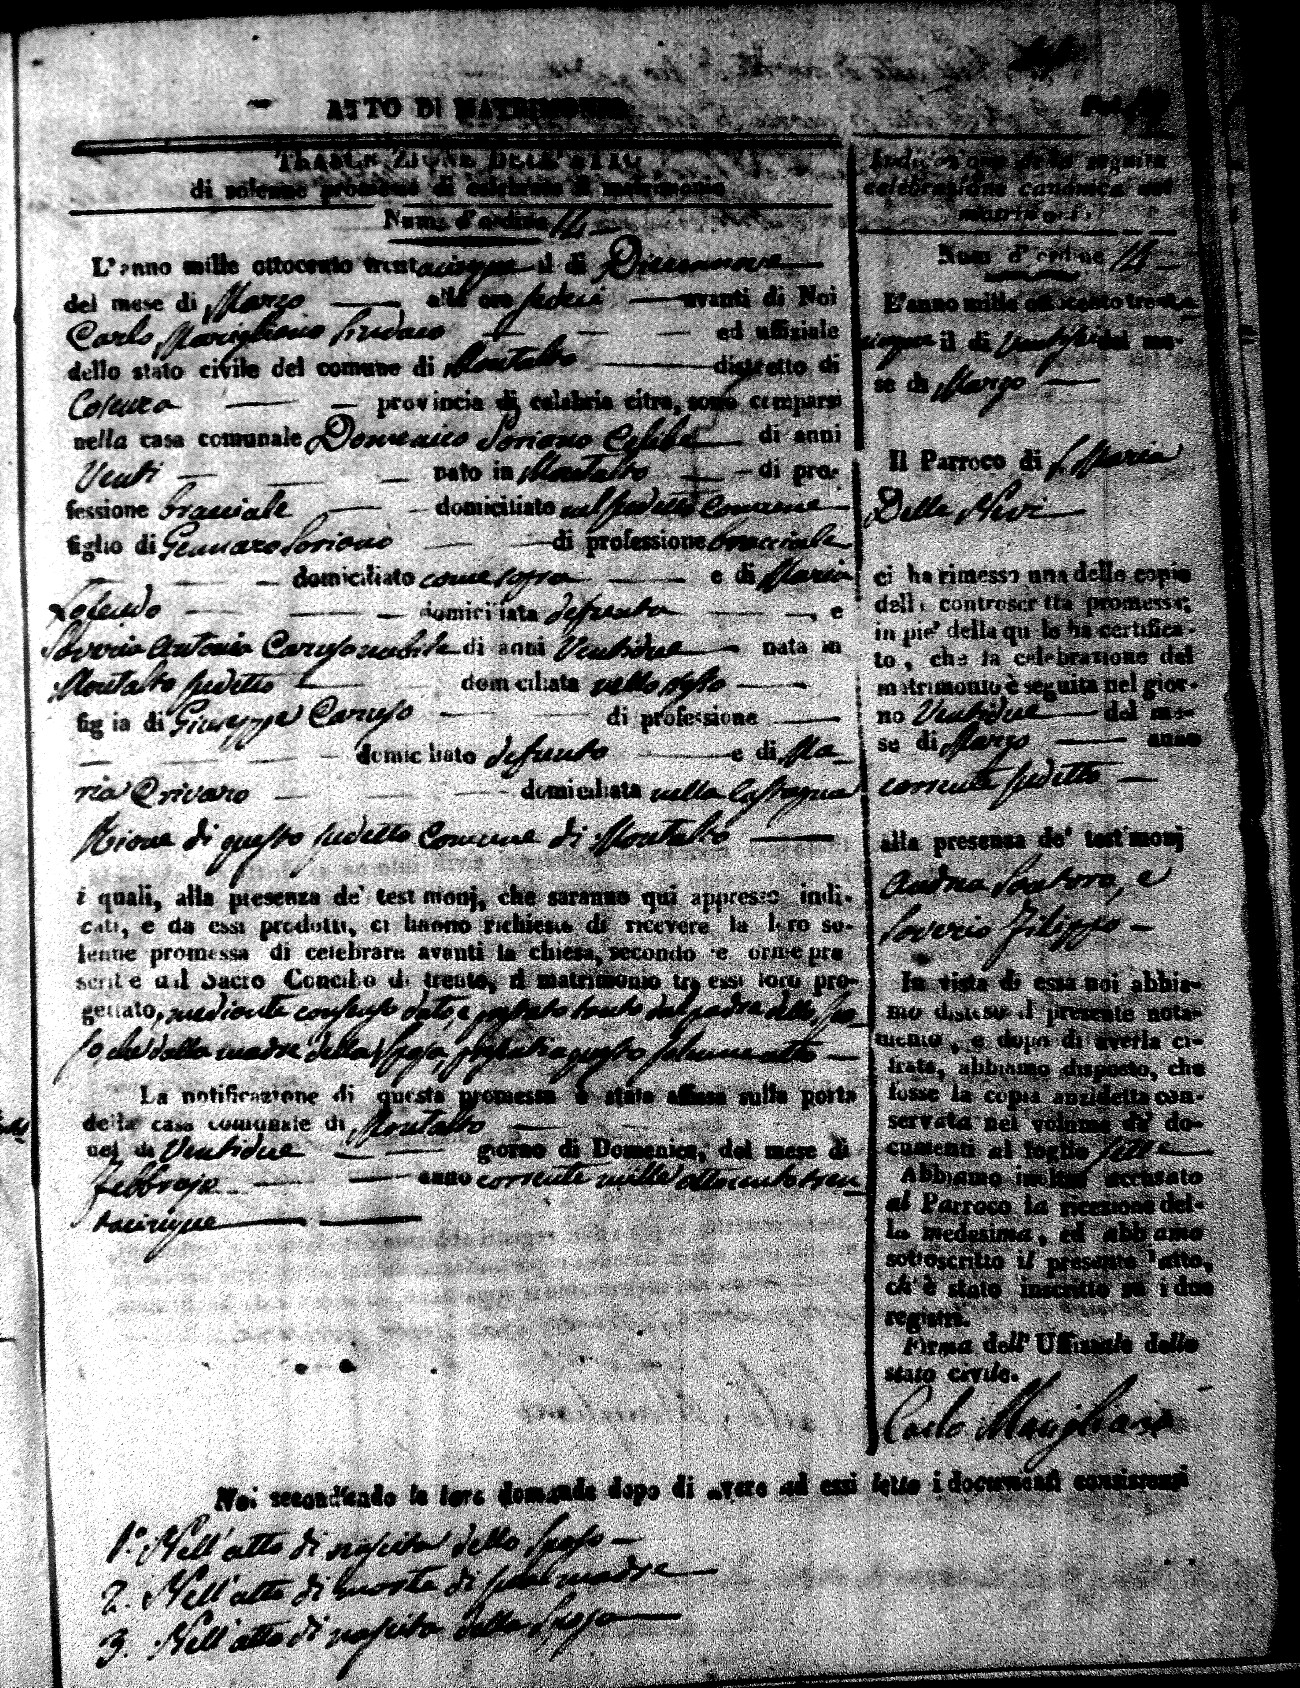 ATTO DI MATRIMONIO
TRASCRIZIONE DELL'ATTO
di solenne promessa di celebrare il matrimonio
Num. d'ordine 14
L'anno mille ottocento trentacinque il dì Diecinnove
del mese di Marzo alle ore sedici avanti di Noi
Carlo Marigliano Sindaco ed uffiziale
dello stato civile del comune di Montalto distretto di
Cosenza provincia di calabria citra, sono comparsi
nella casa comunale Domenico Soriano Celibe di anni
Venti nato in Montalto di pro-
fessione bracciale domiciliato nel sudetto Comune
figlio di Gennaro Soriano di professione bracciale
domiciliato come sopra e di Maria
domiciliata defunta, e
Saveria Antonia Caruso nubile di anni Ventidue nata in
Montalto sudetto domiciliata nello stesso
figlia di Giuseppe Caruso di professione
domiciliato defunto e di Ma-
ria Crivaro domiciliata nella
di questo sudetto Comune di Montalto
i quali, alla presenza de' testimonj, che saranno qui appresso indi-
cati, e da essi prodotti, ci hanno richiesto di ricevere la loro so-
lenne promessa di celebrare avanti la chiesa, secondo le forme pre
scritte dal Sacro Concilio di trento, il matrimonio tra essi loro pro-
gettato, mediante consenso dato, e prestato tanto dal padre dello Spo-
so che dalla madre della Sposa, questo solenne atto
La notificazione di questa promessa è stata affissa sulla porta
della casa comunale di Montalto
nel dì Ventidue giorno di Domenica, del mese di
Febbrajo anno corrente mille ottocento tren-
tacinque
Indicazione della seguita
celebrazione canonica del
matrimonio
Num. d'ordine 14
L'anno mille ottocento trenta-
cinque il dì del me-
se di Marzo
Il Parroco di S. Maria
Della Neve
ci ha rimesso una delle copie
della controscritta promessa;
in piè della quale ha certifica-
to, che la celebrazione del
matrimonio è seguita nel gior-
no Ventidue del me-
se di Marzo anno
corrente sudetto
alla presenza de' testimonj
Andrea Santoro, e
Saverio Filippo
In vista di essa noi abbia-
mo disteso il presente nota-
mento, e dopo di averla ci-
frata, abbiamo disposto, che
fosse la copia anzidetta con-
servata nel volume de' do-
cumenti al foglio sette
Abbiamo inoltre accusato
al Parroco la ricezione del-
la medesima, ed abbiamo
sottoscritto il presente atto,
ch'è stato inscritto su i due
registri.
Firma dell'Uffiziale dello
stato civile.
Carlo Marigliano
Noi secondando la loro domanda dopo di avere ad essi letto i documenti consistenti
1.° Nell'atto di nascita dello Sposo
2. Nell'atto di morte di sua madre
3. Nell'atto di nascita della Sposa